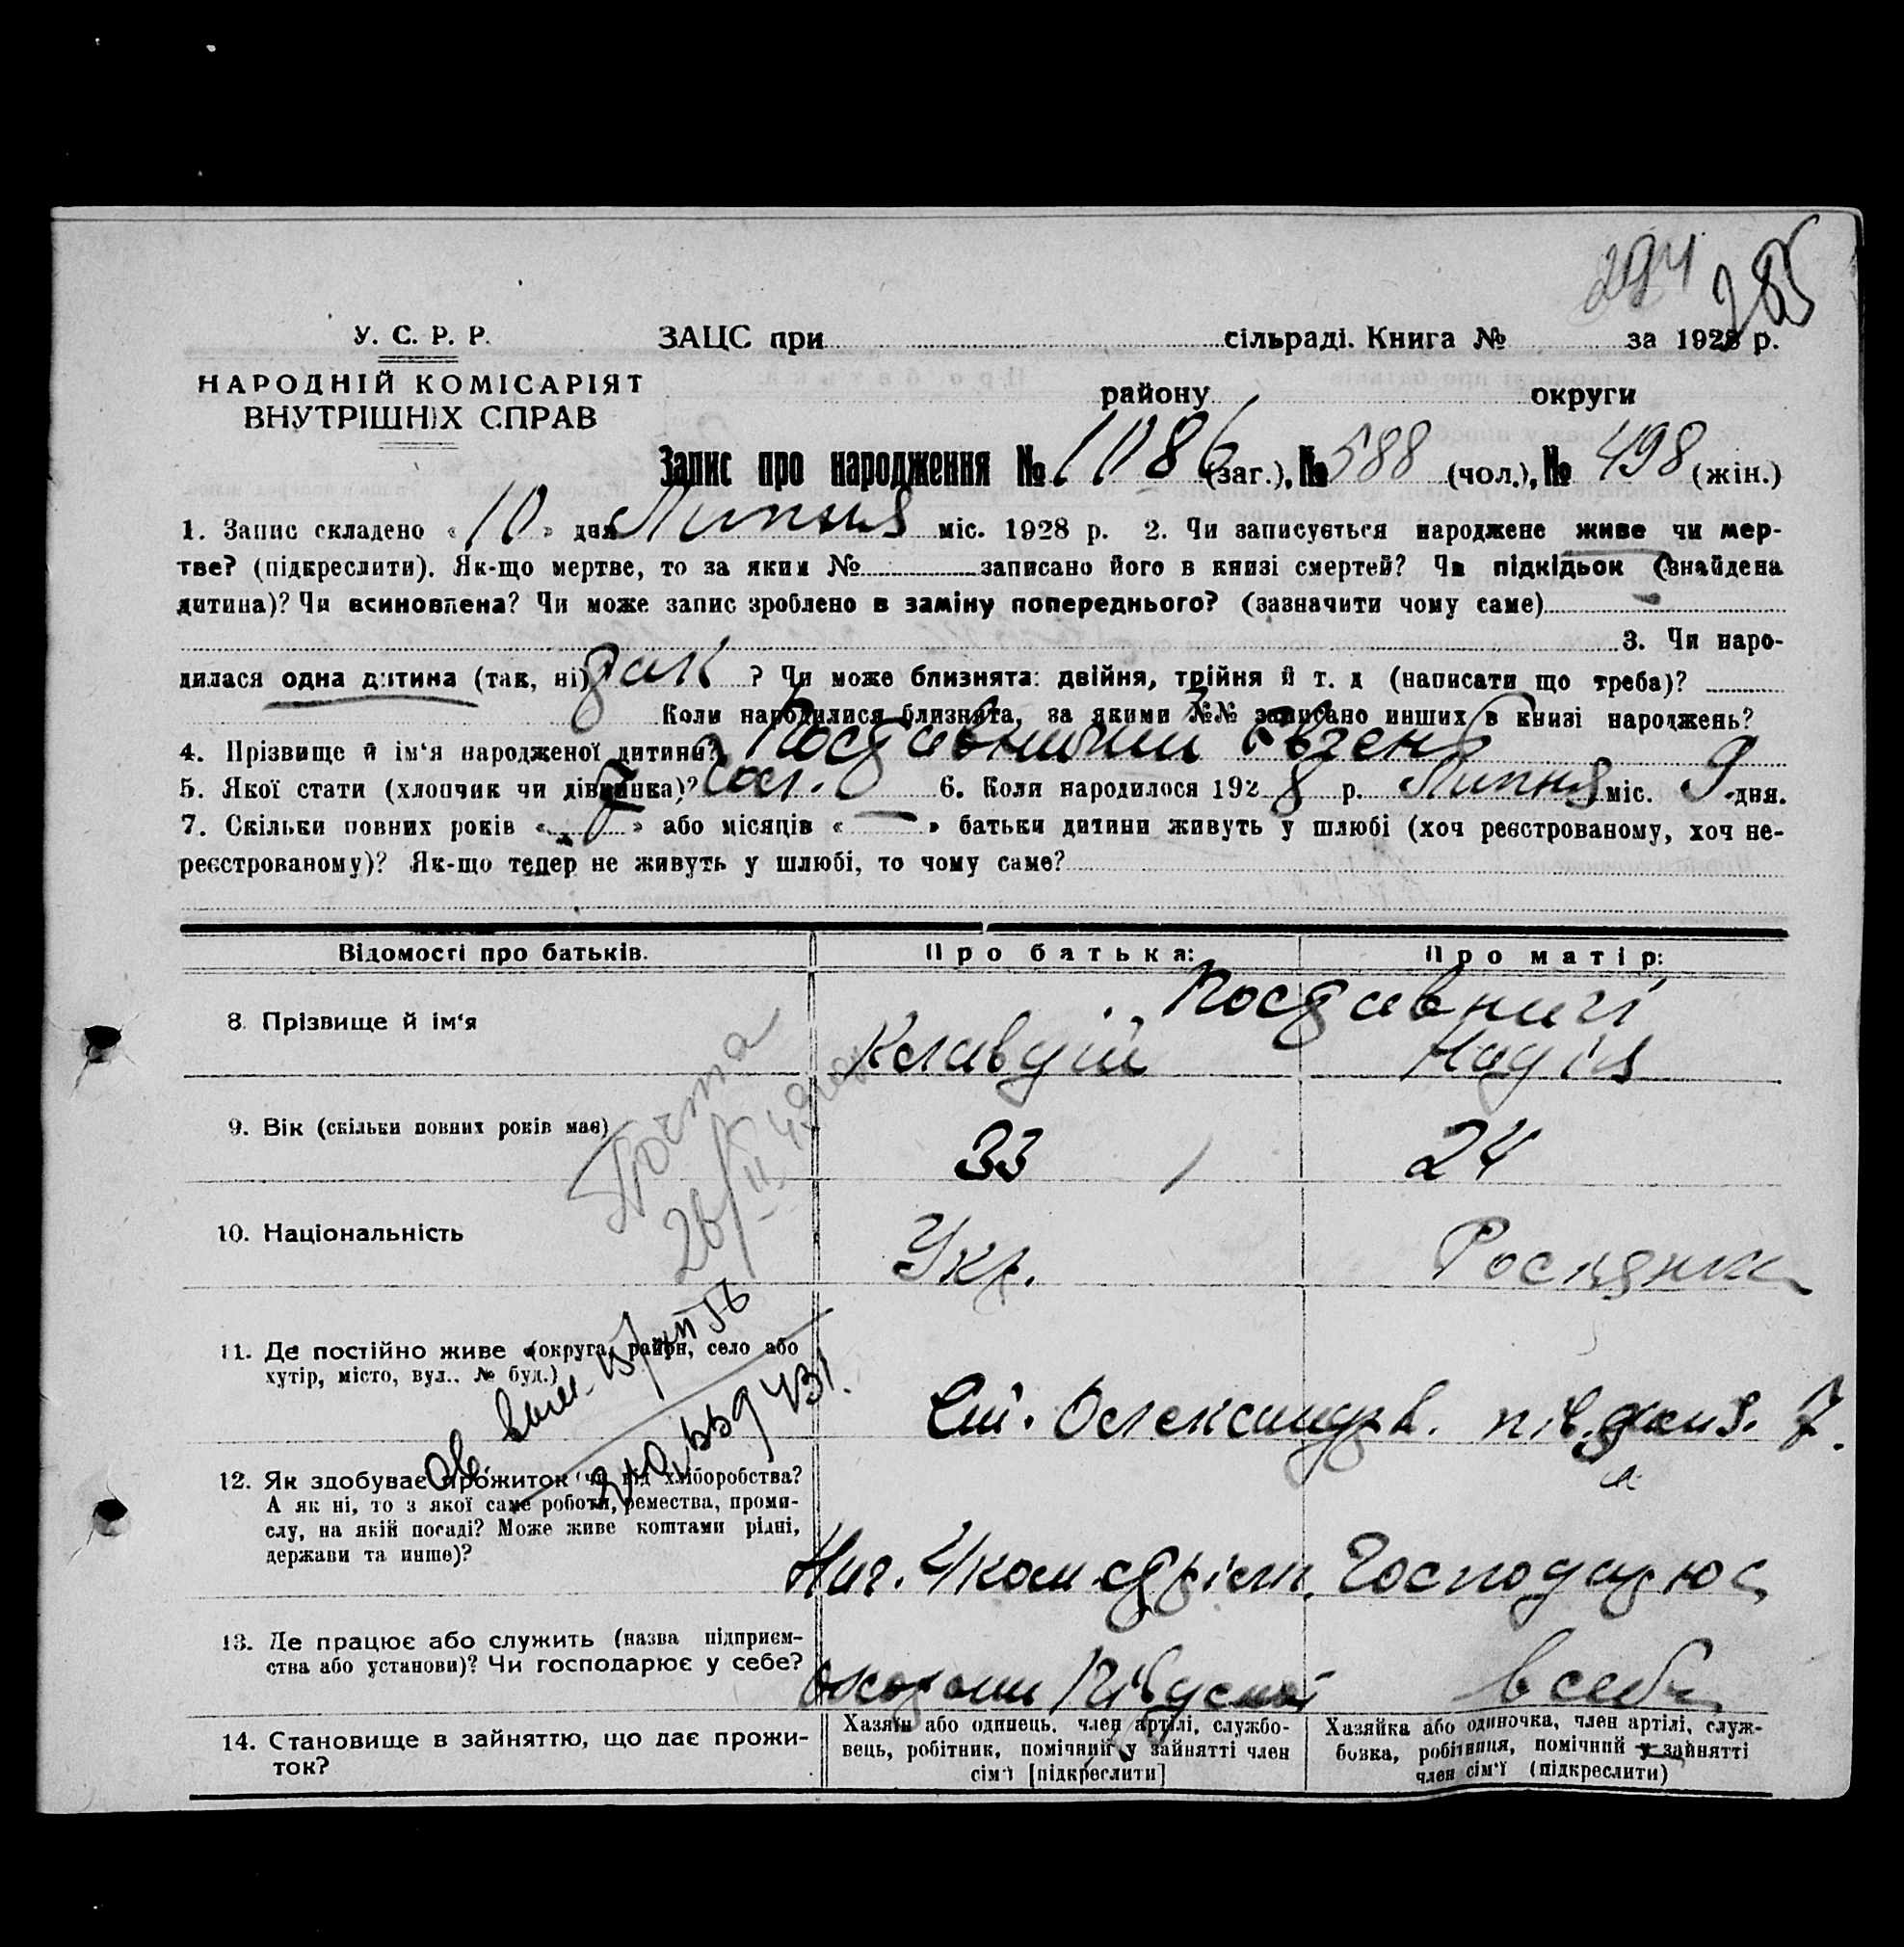 294 285
У. С. Р. Р.
ЗАЦС при сільраді. Книга № за 1928 р.
НАРОДНІЙ КОМІСАРІЯТ
ВНУТРІШНІХ СПРАВ
району округи
Запис про народження № 1086 (заг.), № 588 (чол.), № 498 (жін.)
1. Запис складено « 10 » дня Липня міс. 1928 р. 2. Чи записується народжене живе чи мер-
тве? (підкреслити). Як-що мертве, то за яким № записано його в книзі смертей? Чи підкідьок (знайдена
дитина)? Чи всиновлена? Чи може запис зроблено в заміну попереднього? (зазначити чому саме)
3. Чи наро-
дилася одна дитина (так, ні) так ? Чи може близнята: двійня, трійня й т. д (написати що треба)?
Коли народилися близнята, за якими №№ записано инших в книзі народжень?
4. Прізвище й ім‘я народженої дитини? Поставничий Євген
5. Якої стати (хлопчик чи дівчинка)? 6. Коли народилося 1928 р. Липня міс. 9 дня.
7. Скільки повних років « 7 » або місяців « — » батьки дитини живуть у шлюбі (хоч реєстрованому, хоч не-
реєстрованому)? Як-що тепер не живуть у шлюбі, то чому саме?
Відомості про батьків. Про батька: Про матір:
Поставничі
8. Прізвище й ім‘я Клавдій Надія
9. Вік (скільки повних років має) 33 24
10. Національність Укр. Росиянка
11. Де постійно живе (округа, район, село або
хутір, місто, вул.. № буд.)
Ст. Олександр. 7.
12. Як здобуває прожиток чи від хліборобства?
А як ні, то з якої саме роботи, ремества, проми-
слу, на якій посаді? Може живе коштами рідні,
держави та инше)?
Господарює
13. Де працює або служить (назва підприєм-
ства або установи)? Чи господарює у себе?
в себе
14. Становище в зайняттю, що дає прожи-
ток?
Хазяїн або одинець, член артілі, службо-
вець, робітник, помічний у зайнятті член
сім‘ї [підкреслити]
Хазяйка або одиночка, член артілі, служ-
бовка, робітниця, помічний у зайнятті
член сім‘ї (підкреслити)
Почта